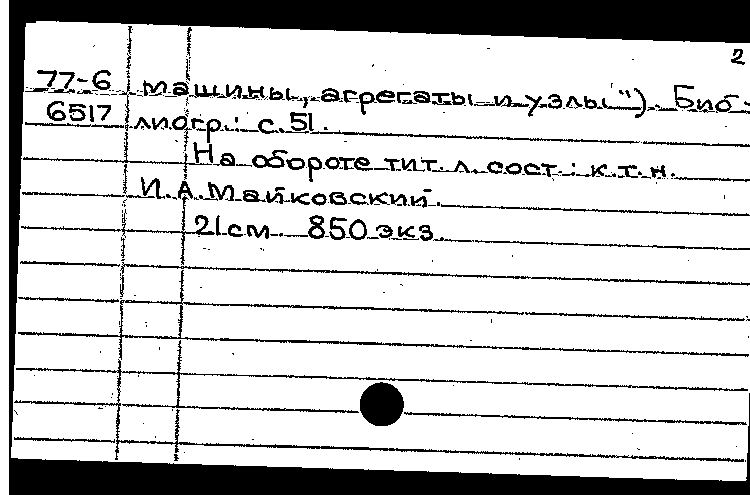 2
77-6 машины, агрегаты и узлы"). Биб-
6517 лиогр.: с.51.
На обороте тит. л. сост.: к.т.н.
И.А.Майковский.
21см. 850 экз.